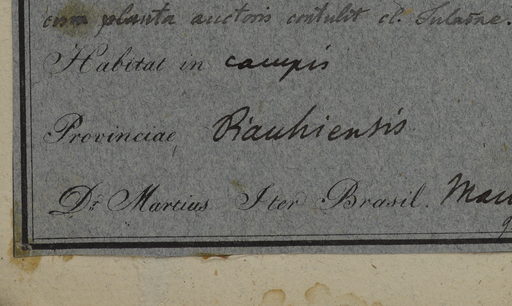 cum planta auctoris contulit cl. Tulasne.
Habitat in campis
Provinciae Piauhiensis
Dr. Martius Iter Brasil.